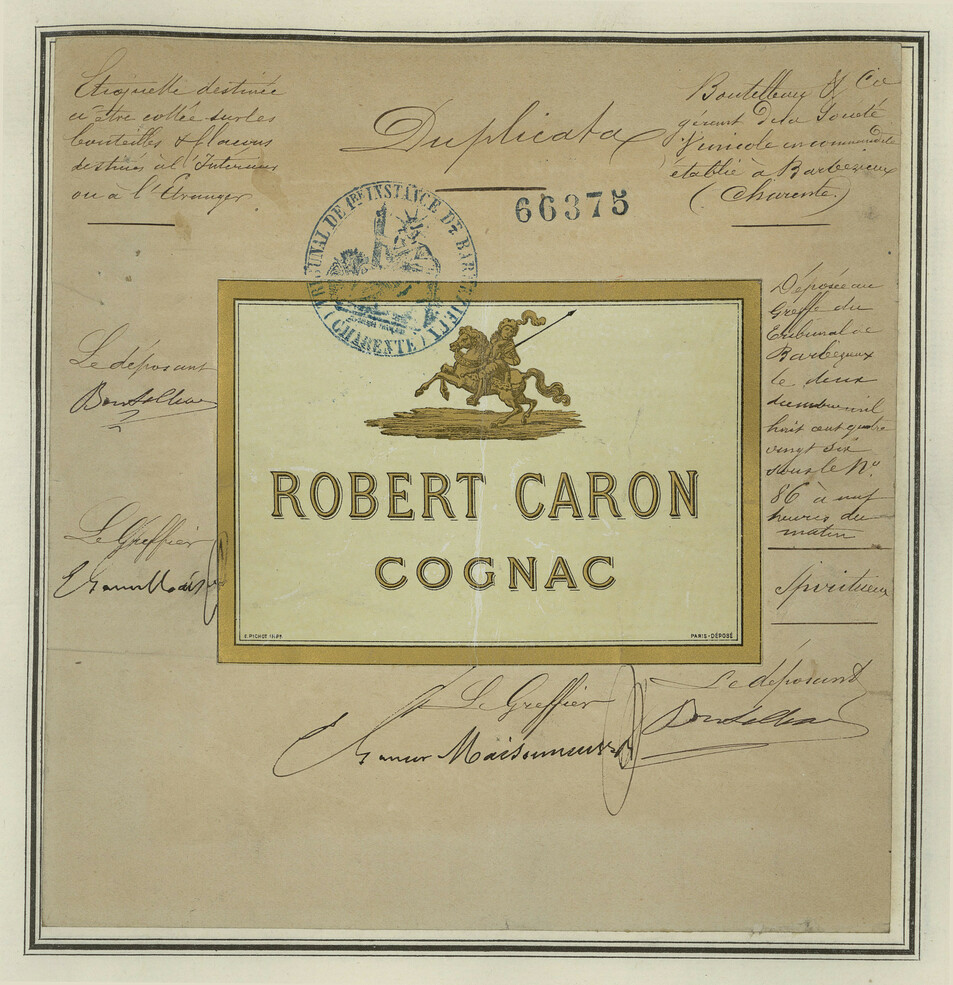 Etiquette destinée
à être collée sur les
bouteilles & flacons
destinés à l'Intérieur
ou à l'Etranger
Duplicata
Boutelleau & Cie
gérant de la Société
Vinicole en commandite
établie à Barbezieux
(Charente.)
66375
TRIBUNAL DE 1ère INSTANCE DE BARBEZIEUX
(CHARENTE)
Déposée au
Greffe du
Tribunal de
Barbezieux
le deux
huit cent quatre
vingt six
sous le No
86 à neuf
heures du
matin
Spiritueux
Le déposant
Boutelleau
Le Greffier
ROBERT CARON
COGNAC
PARIS-DÉPOSÉ
Le Greffier
Maisonneuve
Le déposant
Boutelleau